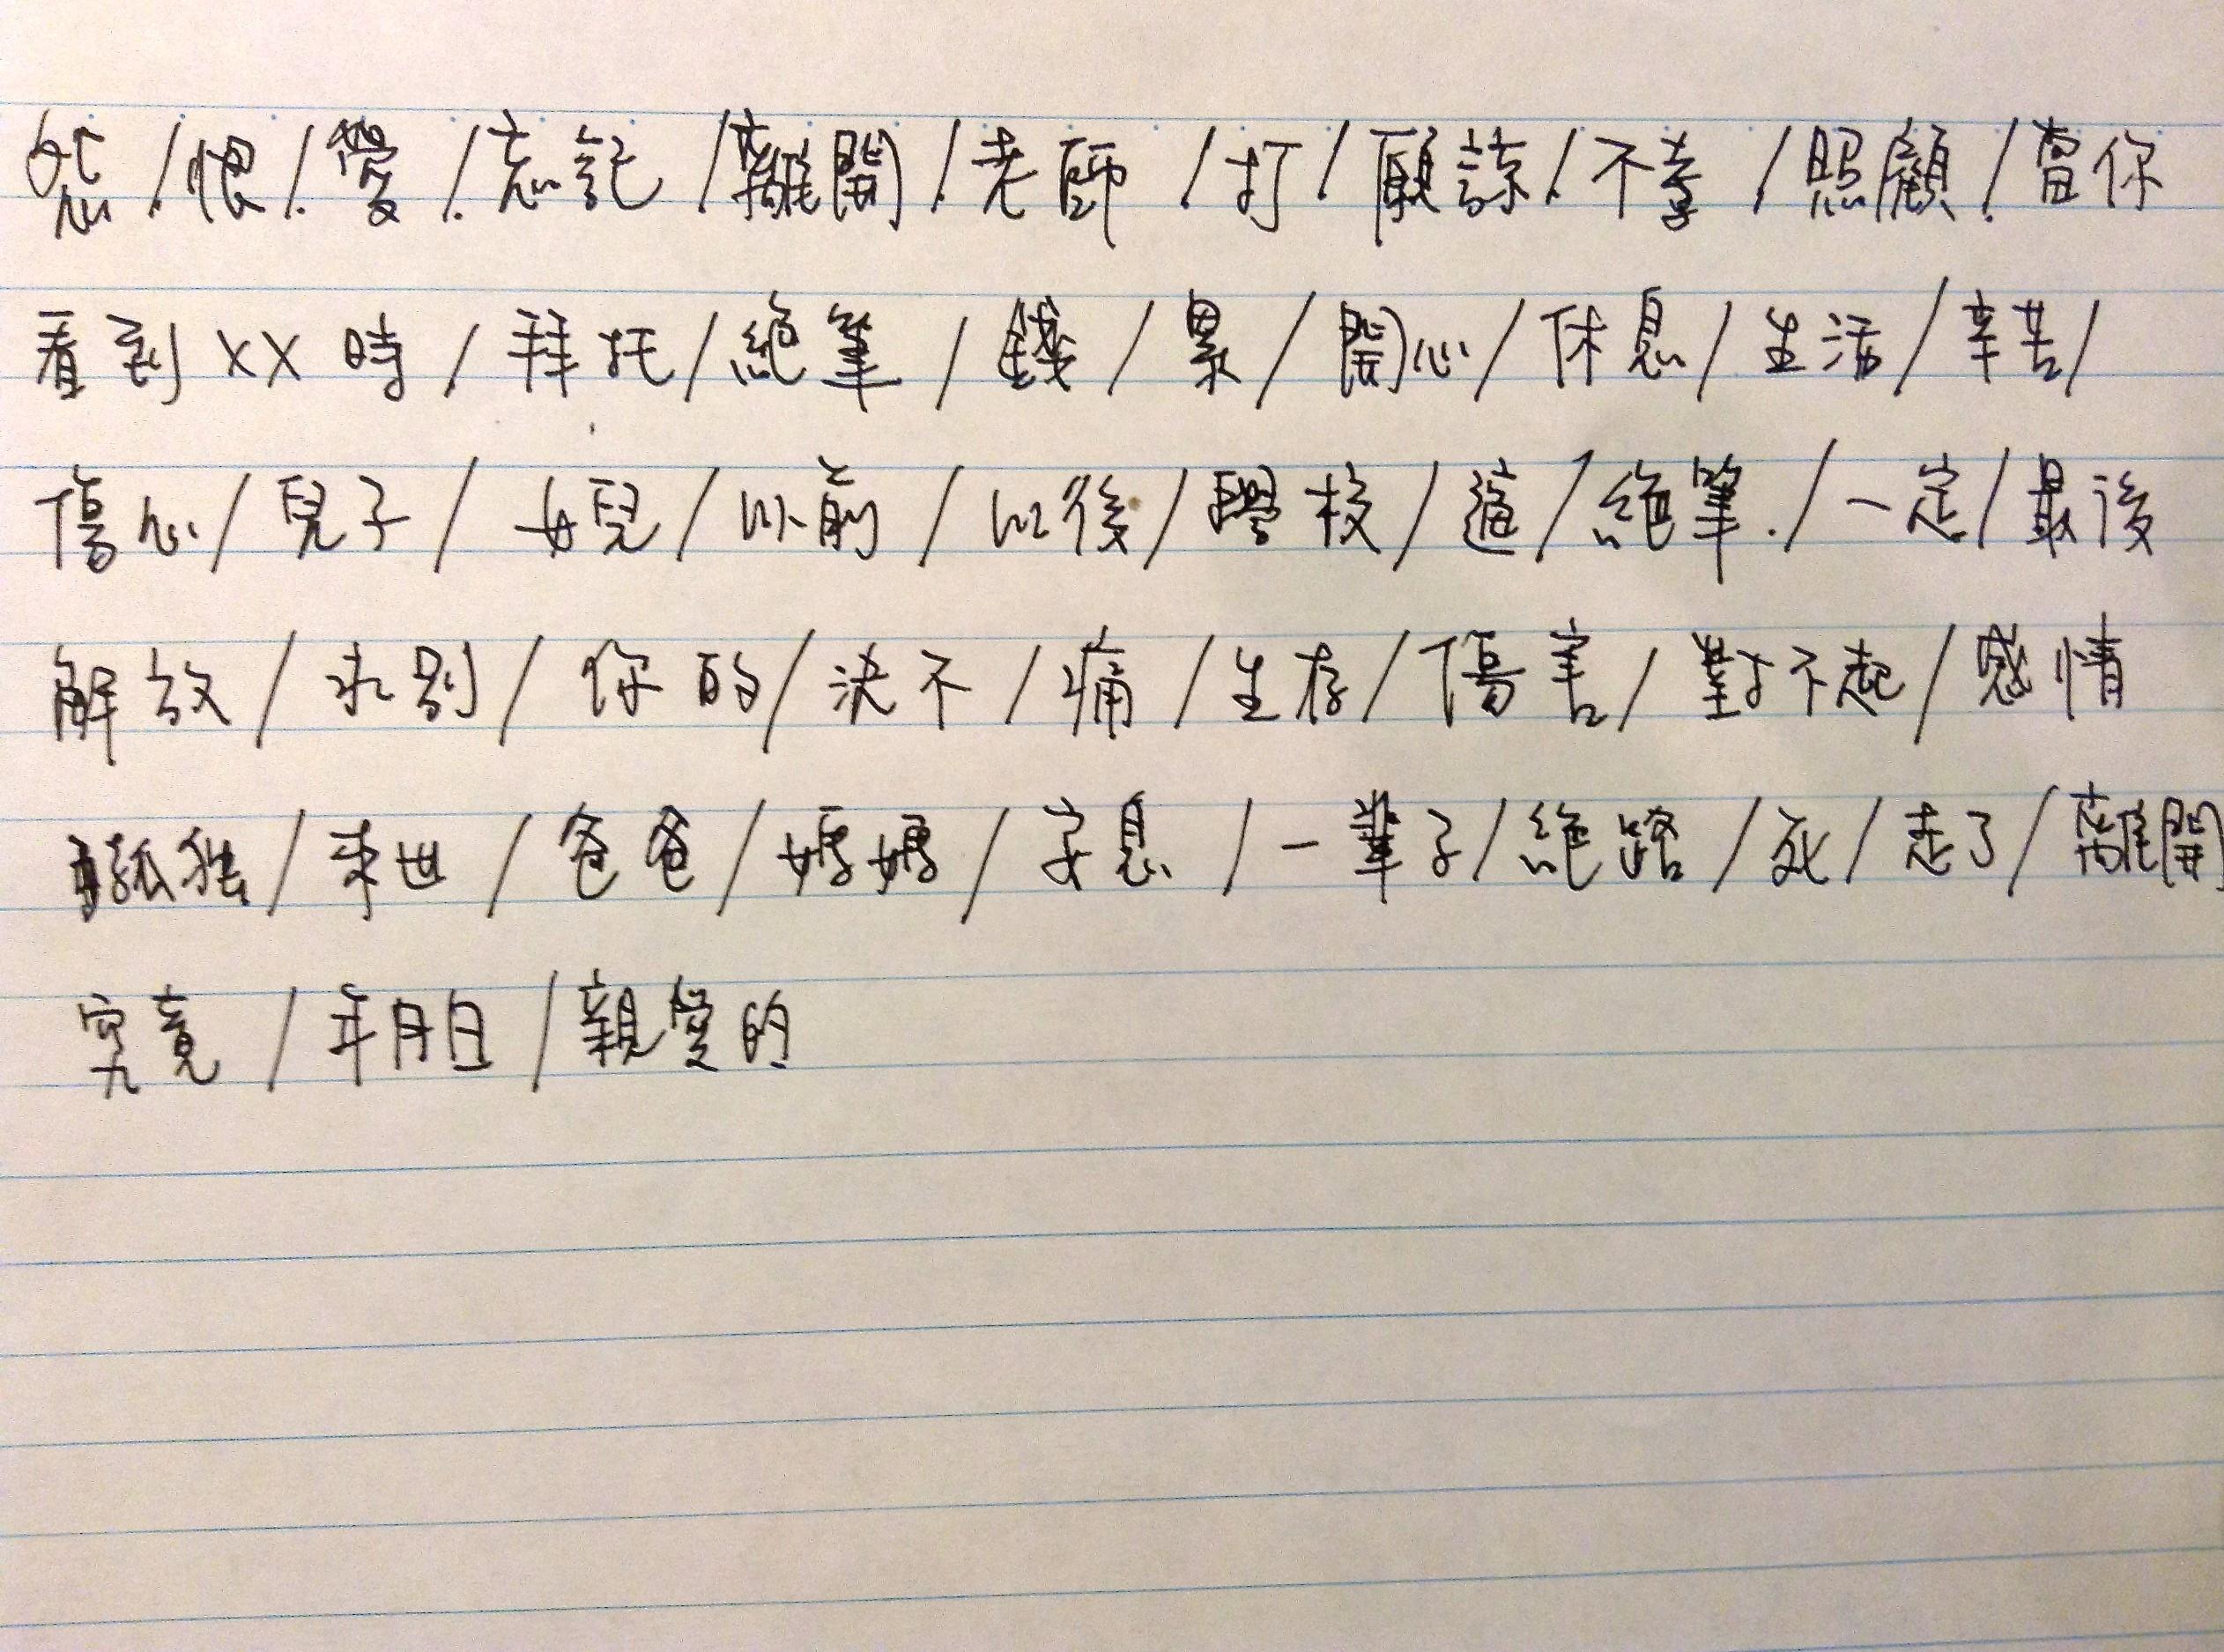 怨/恨/愛/忘記/離開/老師/打/願諒/不孝/照顧/當你
看到XX時/拜托/絕筆/錢/累/開心/休息/生活/辛苦/
傷心/兒子/女兒/以前/以後/學校/逼/絕筆/一定/最後
解放/永別/你的/決不/痛/生存/傷害/對不起/感情
孤独/來世/爸爸/媽媽/安息/一輩子/絕路/死/走了/離開
究竟/年月日/親愛的